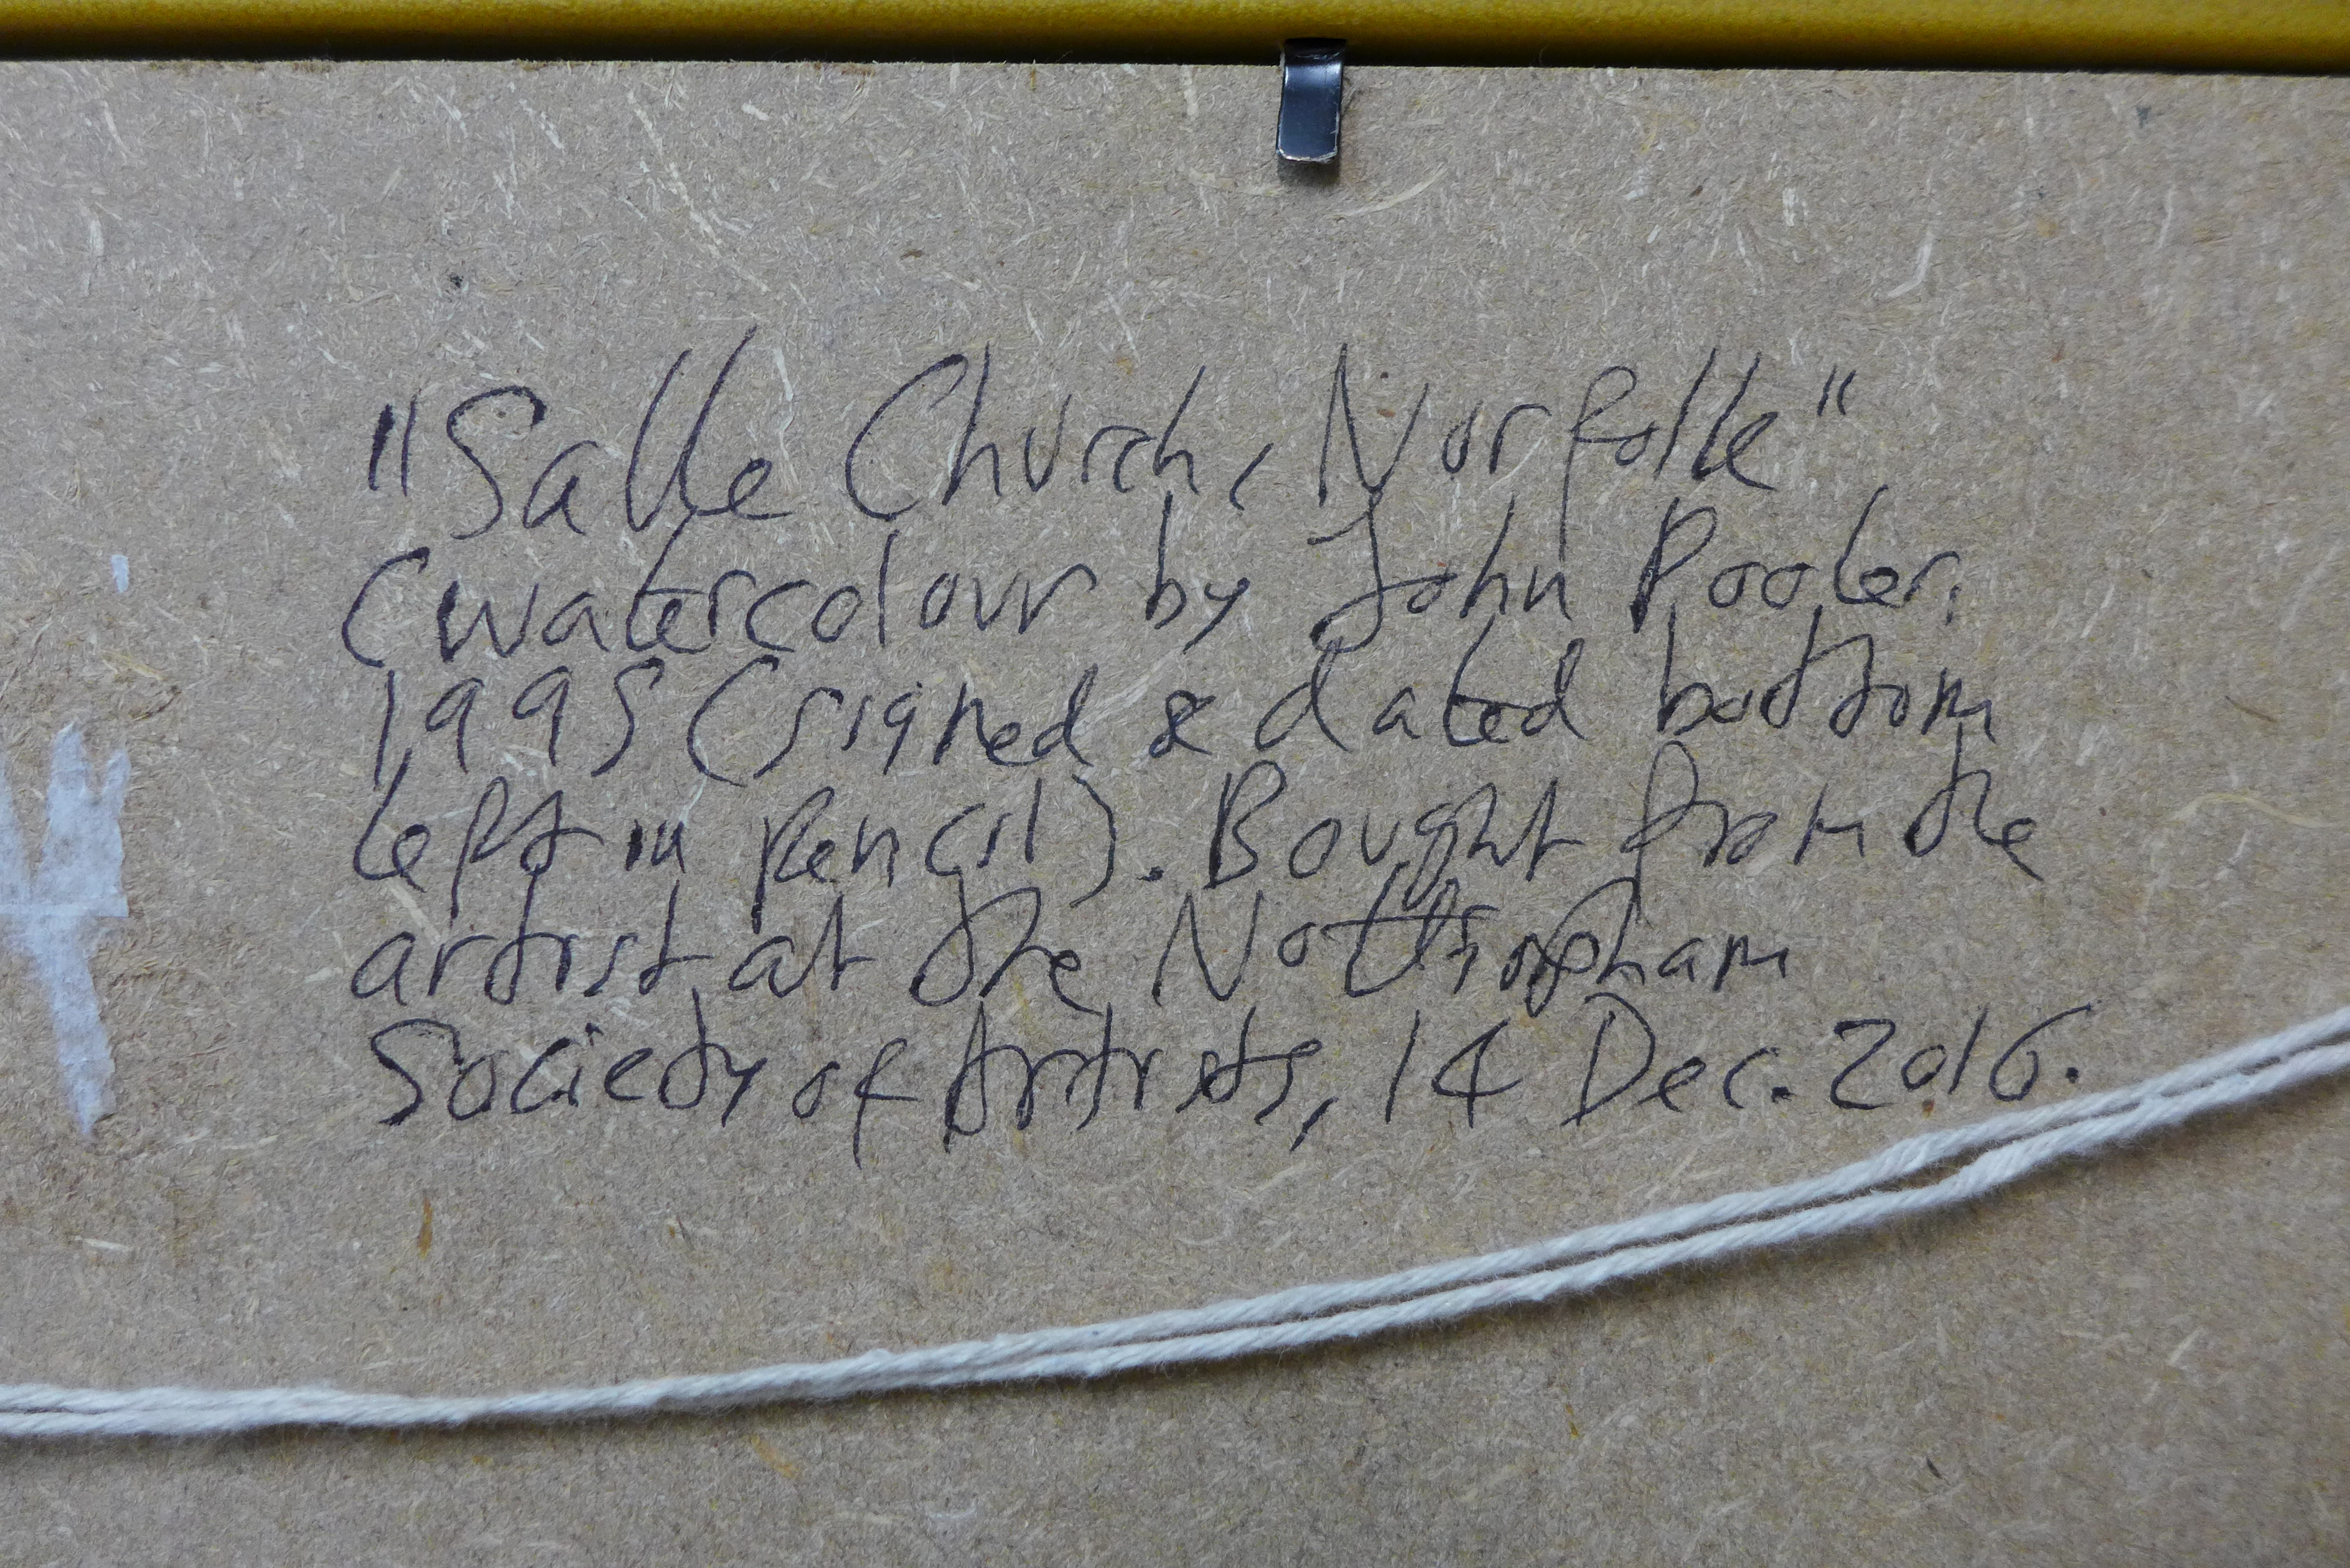 "Salle Church, Norfolk"
(watercolour by John Pooler,
1995 (signed & dated bottom
left in pencil). Bought from the
artist at the Nottingham
Society of Artists, 14 Dec. 2016.